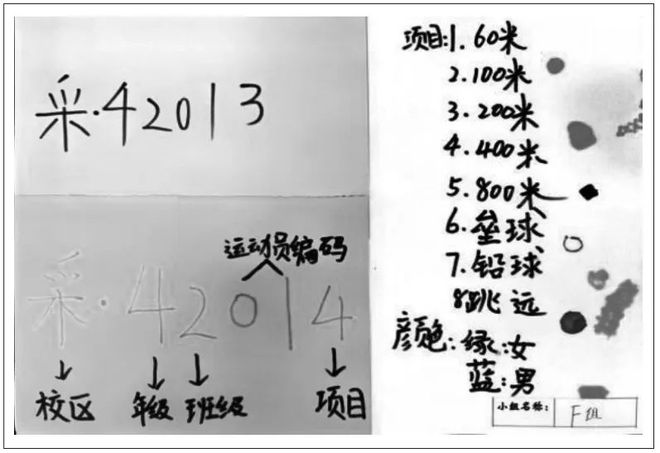 采·42013
运动员编码
采·42014
校区 年级 班级 项目
项目:1.60米
2.100米
3.200米
4.400米
5.800米
6.垒球
7.铅球
8跳远
颜色:绿:女
蓝:男
小组名称: F组